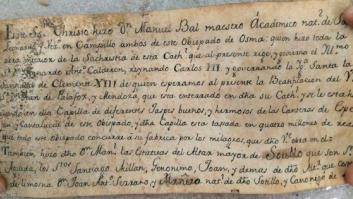 Este Sto Christo hizo Dn Manuel Bal maestro Academico natl de Sn
y en Campillo ambos de este Obispado de Osma; quien hizo toda la
de la Sachristia de esta Cathl que al presente rige, y govierna el Illmo
Bernardo Antto Calderon, reynando Carlos III, y governando la Yga Santa la
de Clemente XIII de quien esperamos al presente la Beatificacion del Ve
Juan de Palafox, y Mendoza que esta enterrado en dha su Cathl y se le esta h
en ella Capilla de diferentes Jaspes buenos, y hermosos de las Canteras de Espe
y Cantalucia de este Obispado, y dha Capilla esta tasada en quatro millones de reas
que todo este Obispado concurre a su fabrica por los milagros, que dho Ve obra en él:
Tambien hizo dho Dn Manl las Efixies del Altar mayor de Sotillo que son Sta
los Stos Santiago, Millan, Geronimo, Joan, y demas de dho
de limosna Dn Joan Serrano, y natl de dho Sotillo, y Canonigo de